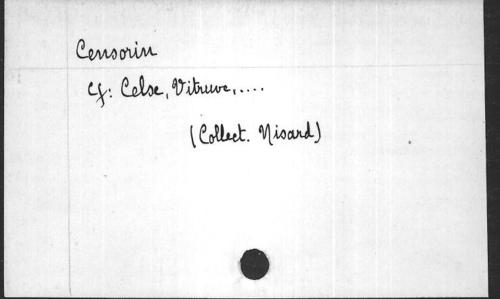 Censorin
Cf: Celse, Vitruve,....
(Collect. Nisard)